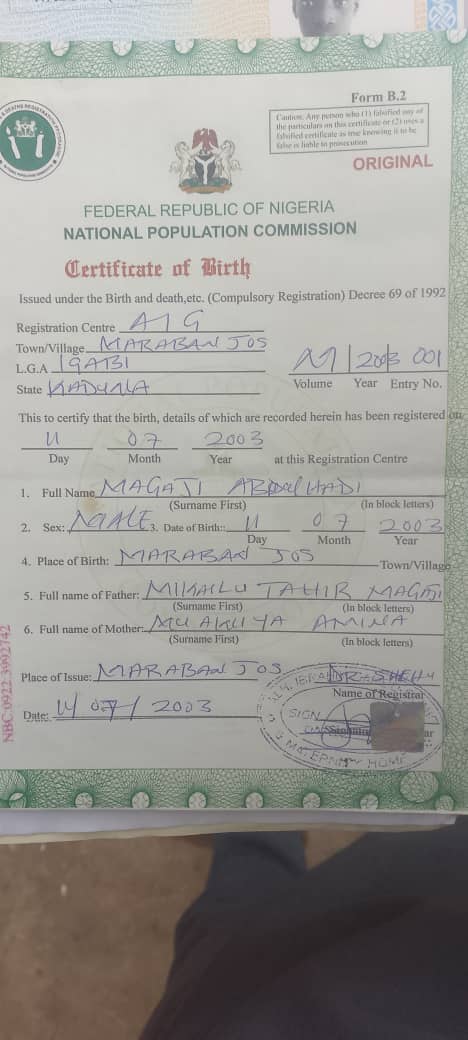 Form B.2
Caution: Any person who (1) falsified any of
the particulars on this certificate or (2) uses a
falsified certificate as true knowing it to be
false is liable to prosecution
ORIGINAL
FEDERAL REPUBLIC OF NIGERIA
NATIONAL POPULATION COMMISSION
Certificate of Birth
Issued under the Birth and death,etc. (Compulsory Registration) Decree 69 of 1992
Registration Centre
Town/Village MARABAN JOS
L.G.A IGABI
State KADUNA
M 2003 001
Volume Year Entry No.
This to certify that the birth, details of which are recorded herein has been registered on
11 07 2003
Day Month Year at this Registration Centre
1. Full Name MAGAJI ABDULHADI
(Surname First) (In block letters)
2. Sex: MALE 3. Date of Birth:: 11 07 2003
Day Month Year
4. Place of Birth: MARABAN JOS Town/Village
5. Full name of Father: MIKAILU TAHIR MAGAJI
(Surname First) (In block letters)
6. Full name of Mother: AMINA
(Surname First) (In block letters)
Place of Issue: MARABAN JOS
Name of Registrar
SIGN
MATERNITY HOME
Date: 11 07 / 2003
NBC:0922 3992742